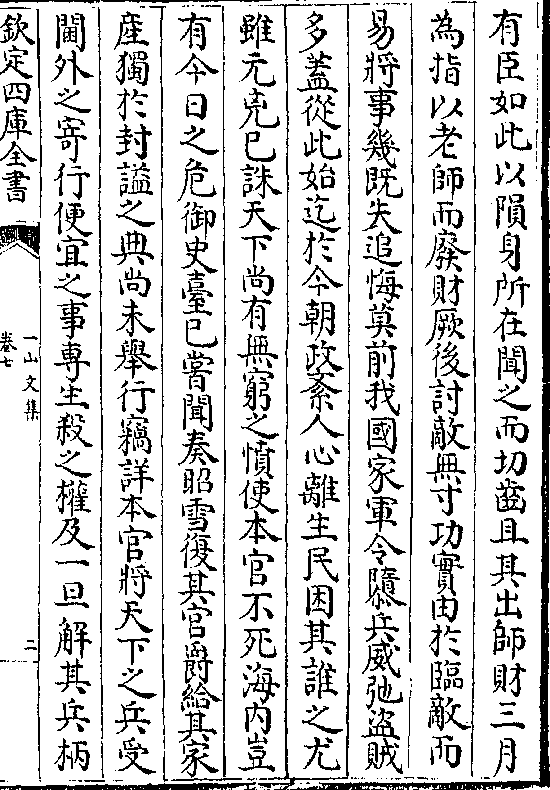 有臣如此以隕身所在聞之而切齒且其出師財三月
為指以老師而廢財厥後討敵無寸功實由於臨敵而
易將事幾既失追悔莫前我國家軍令隳兵威弛盜賊
多蓋從此始迄於今朝政紊人心離生民困其誰之尤
雖元兇已誅天下尚有無窮之憤使本官不死海内豈
有今日之危御史臺已嘗聞奏昭雪復其官爵給其家
產獨於封諡之典尚未舉行竊詳本官將天下之兵受
閫外之寄行便宜之事専生殺之權及一旦解其兵柄
欽定四庫全書
一山文集
卷七
二